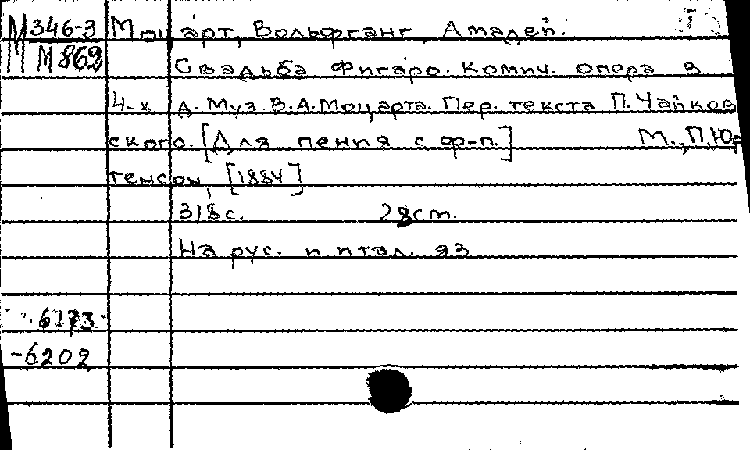 М346-3 Моцарт, Вольфганг Амадей.
М М862
Свадьба Фигаро. Комич. опера в
4-х д. Муз. В.А.Моцарта. Пер. текста П.Чайков
ского. [Для пения с ф-п.] М., П.Юр
генсон, [1884]
318с. 28см.
На рус. и итал. яз
6173
-6202